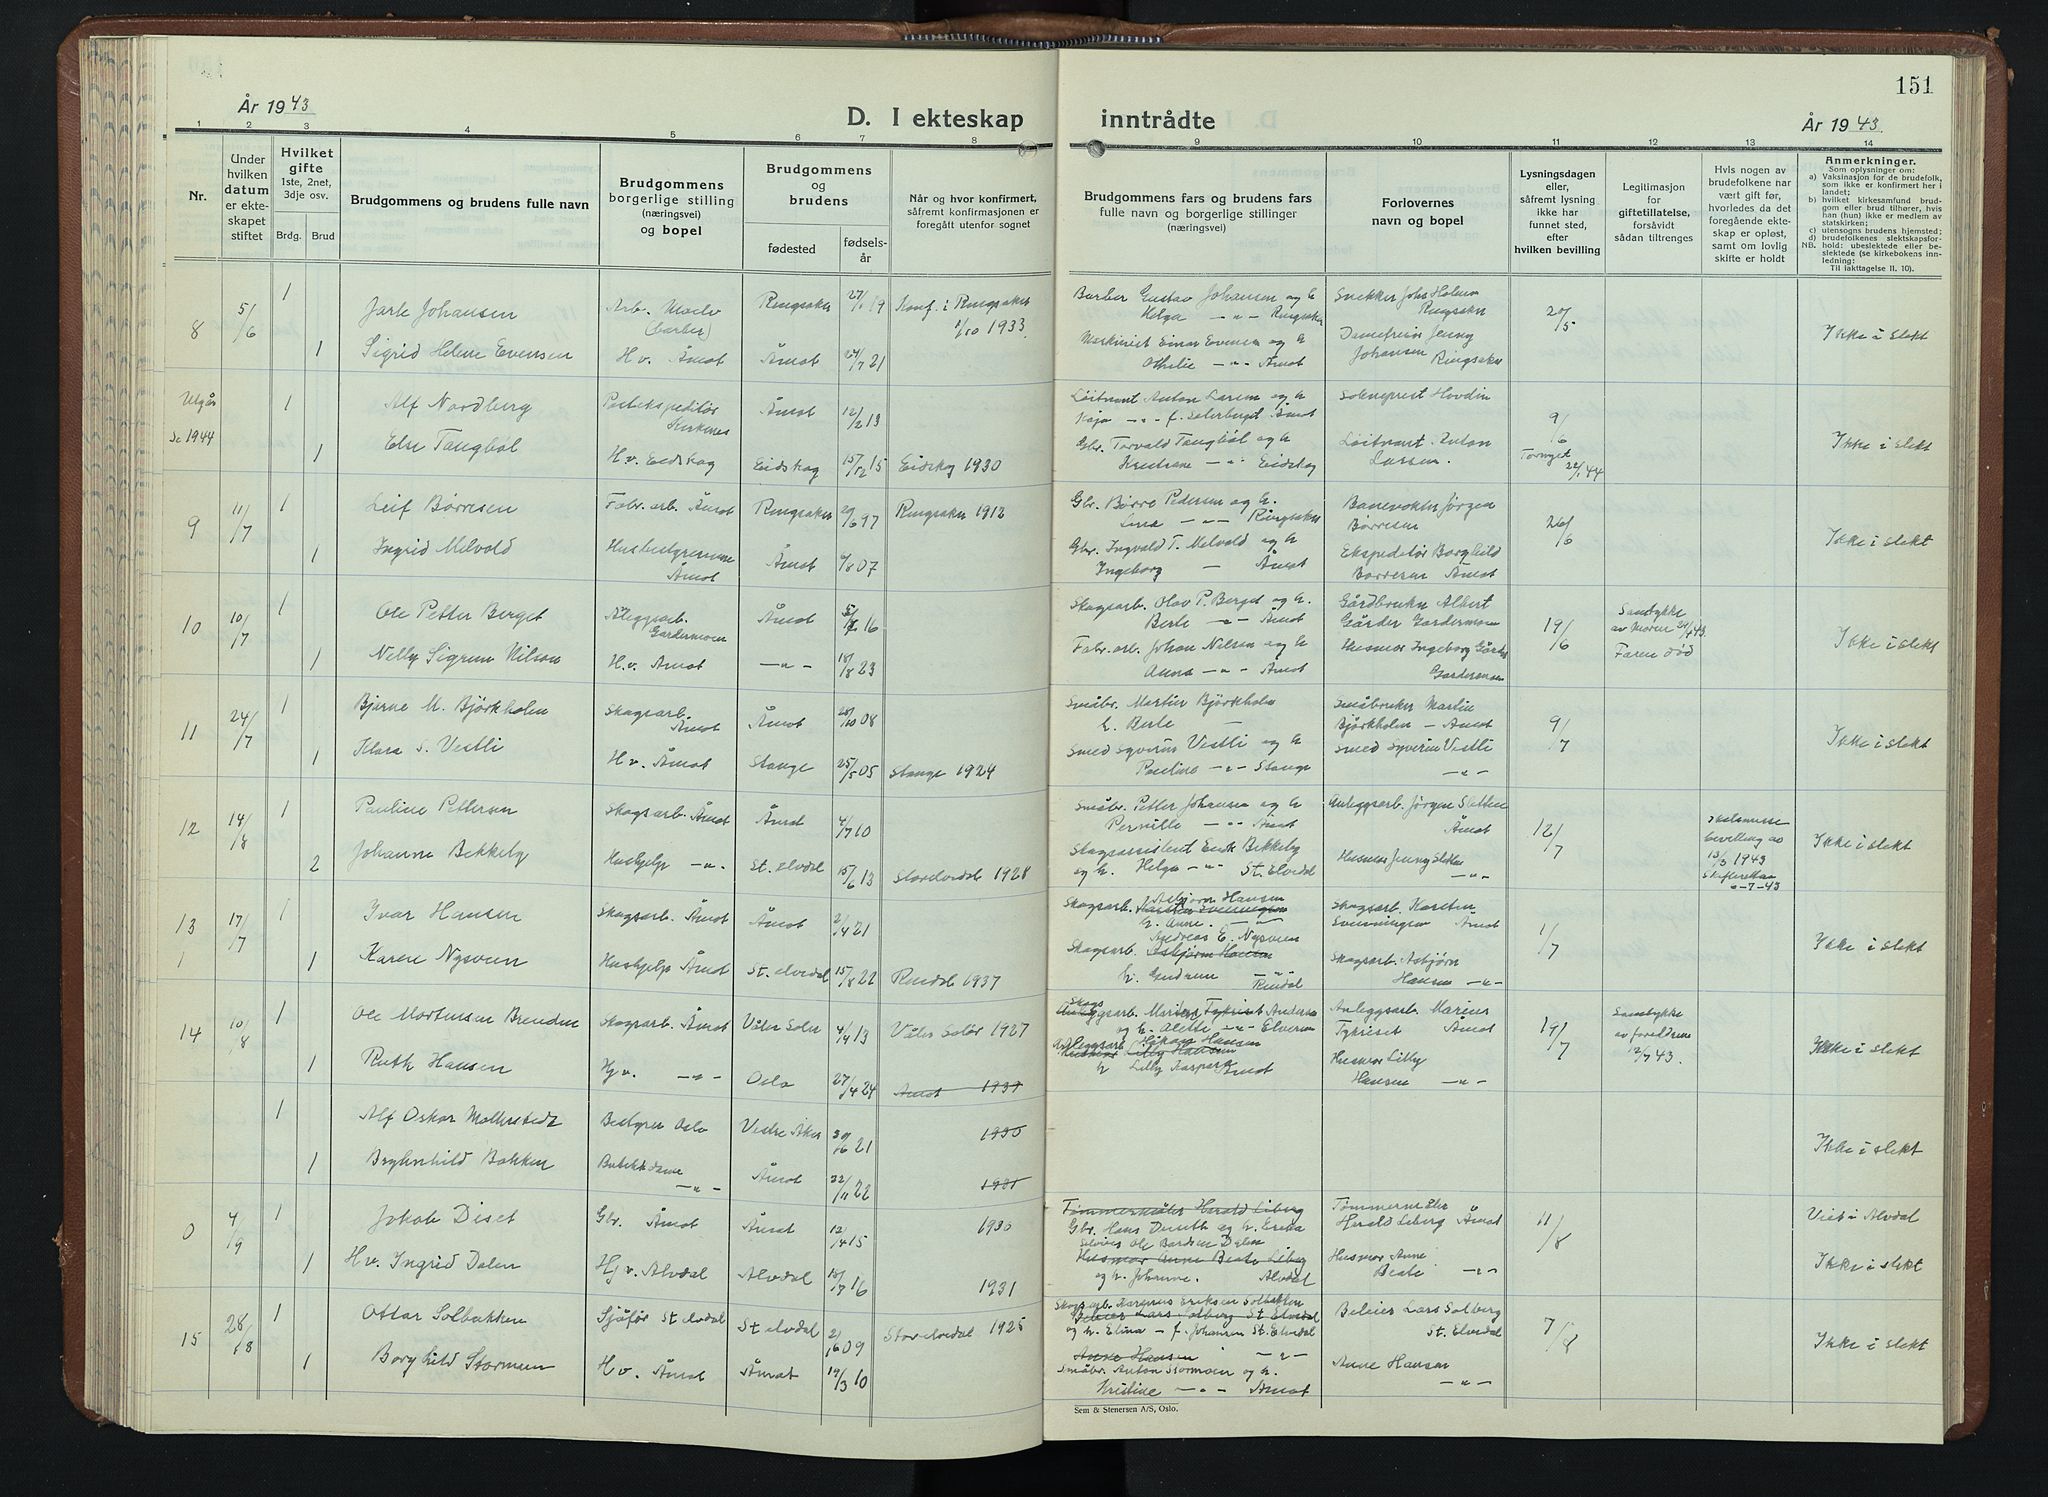 År 1943
D. I ekteskap inntrådte
År 1943.
151
1 2 3 4 5 6 7 8 9 10 11 12 13 14
Nr.
Under hvilken datum er ekteskapet stiftet
Hvilket gifte 1ste, 2net, 3dje osv.
Brdg. Brud
Brudgommens og brudens fulle navn
Brudgommens borgerlige stilling (næringsvei) og bopel
Brudgommens og brudens
fødested
fødselsår
Når og hvor konfirmert, såfremt konfirmasjonen er foregått utenfor sognet
Brudgommens fars og brudens fars fulle navn og borgerlige stillinger (næringsvei)
Forlovernes navn og bopel
Lysningsdagen eller, såfremt lysning ikke har funnet sted, efter hvilken bevilling
Legitimasjon for giftetillatelse, forsåvidt sådan tiltrenges
Hvis nogen av brudefolkene har vært gift før, hvorledes da det foregående ekteskap er opløst, samt om lovlig skifte er holdt
Anmerkninger.
Som oplysning om:
a) Vaksinasjon for de brudefolk, som ikke er konfirmert her i landet;
b) hvilket kirkesamfund brudgom eller brud tilhører, hvis han (hun) ikke er medlem av statskirken;
c) utensogns brudens hjemsted;
d) brudefolkenes slektskapsforhold: ubeslektede eller beslektede (se kirkebokens innledning:
NB.
Til iakttagelse II. 10).
8 5/6 1 Jarle Johansen Arb. (barber) Ringsaker 19 Konf. i Ringsaker 1/10 1933
Barber Gustav Johansen og h. Helga -"- Ringsaker Snekker Johs Holmo Ringsaker 20/5 Ikke i slekt
1 Sigrid Helene Evensen H.v. Åmot Åmot 24/7 21
Maskinist Einar Evensen og h. Othilie -"- Åmot Jenny Johansen Ringsaker
Utgår Se 1944 1 Alf Nordberg Postekspeditør Kirkenes Åmot 12/2 13
Løitnant Anton Larsen og h. Kaja -"- f. Seterberget Åmot Sokneprest Hovdin 9/6
1 Else Tangbøl H.v. Eidskog Eidskog 15/12 15 Eidskog 1930
Gbr. Torvald Tangbøl og h. Kristiane -"- Eidskog Løitnant Anton Larsen. Tornget 22/1 44 Ikke i slekt
9 11/7 1 Leif Børresen Fabr. arb. Åmot Ringsaker 97 Ringsaker 1912
Gbr. Børre Pedersen og h. Lina -"- Ringsaker Banevokter Jørgen Børresen 26/6 Ikke i slekt
1 Ingrid Melvold Husbestyrerinne Åmot Åmot 07
Gbr. Ingvald T. Melvold og h. Ingeborg - Åmot Ekspeditør Borghild Børresen Åmot
10 10/7 1 Ole Petter Berget Anleggsarb. Gardermoen Åmot 16
Skogsarb. Olav P. Berget og h. Berte -"- Åmot Gårdbruker Albert Gårder Gardermoen 19/6 Samtykke av Moren 43. Faren død Ikke i slekt
1 Nelly Sigrun Nilsen H.v. Åmot -"- 18/8 23
Fabr. arb. Johan Nilsen og h. Anna -"- Åmot Husmor Ingeborg Gårder Gardermoen
11 24/7 1 Bjarne M. Björkholen Skogsarb. Åmot Åmot 08
Småbr. Martin Björkholen h. Berte - Småbruker Martin Björkholen - Åmot 9/7 Ikke i slekt
1 Klara S. Vestli H.v. Åmot Stange 25/5 05 Stange 1924
Smed Syverin Vestli og h. Pauline -"- Stange Smed Syverin Vestli -"-
12 14/8 1 Pauline Pettersen Skogsarb. Åmot Åmot 4/7 10
Småbr. Petter Johansen og h. Pernille -"- Åmot Anleggsarb. Jørgen Sletten Åmot 12/7 Skilsmisse bevilling av 13/3 1943 Ikke i slekt
2 Johanne Bekkeby Hushjelp -"- St. Elvdal 15/6 13 Storelvdal 1928
Skogsassistent Bekkeby og h. Helga -"- St. Elvdal Husmor Jenny Sletten -"- 6-7-43
13 17/7 1 Ivar Hansen Skogsarb. Åmot Åmot 2/4 21
Skogsarb. Asbjørn Hansen h. Anne. -"- Skogsarb. Karsten Svenningsen Åmot 1/7 Ikke i slekt
1 Karen Nysveen Hushjelp Åmot St. Elvdal 15/8 22 Rendal 1937
Skogsarb. Andreas E. Nysveen Asbjørn Hansen h. Gudrun -"- Rendal Skogsarb. Asbjørn Hansen -"-
14 10/8 1 Ole Mortinsen Brenden Skogsarb. Åmot Våler Solør 4/4 13 Våler Solør 1927
Skogs Anleggsarb. Tykriset og h. Alette -"- Elverum Anleggsarb. Marius Tykriset Åmot 19/7 Samtykke av foreldrene 12/7 43. Ikke i slekt
1 Ruth Hansen Hj.v. -"- Oslo 27/4 24 Åmot 1939
Anleggsarb. Håkon Hansen Husmor Lilly Hansen h. Lilly Kaspara Åmot Husmor Lilly Hansen -"-
1 Alf Oskar Bestyrer Oslo Vestre Aker 21 1936
1 Brynhild Bakken Butikkdame -"- Åmot 22/11 22 Ikke i slekt
0 4/9 1 Jakob Diset Gbr. Åmot Åmot 12/4 15 1930
Tømmermåler Harald Liberg Gbr. Hans og h. Tømmermåler Harald Liberg Åmot 11/8 Viet i Alvdal
1 H.v. Ingrid Dalen Hj.v. Alvdal Alvdal 16 1931
Ole Bardsen Dalen Husmor Anne Beate Liberg og h. Johanne. Alvdal Husmor Anne Beate -"- Ikke i slekt
15 28/8 1 Ottar Solbakken Sjåfør St. Elvdal St. Elvdal 09 Storelvdal 1925
Skogsarb. Eriksen Solbakken Beleier Lars Solberg St. Elvdal og h. Elina - f. Johansen St. Elvdal Beleier Lars Solberg St. Elvdal 7/8 Ikke i slekt
1 Borghild Stormoen H.v. Åmot Åmot 19/3 10
Anne Hansen -"- Småbr. Anton Stormoen og h. Kristine -"- Åmot Anne Hansen -"-
Sem & Stenersen A/S, Oslo.